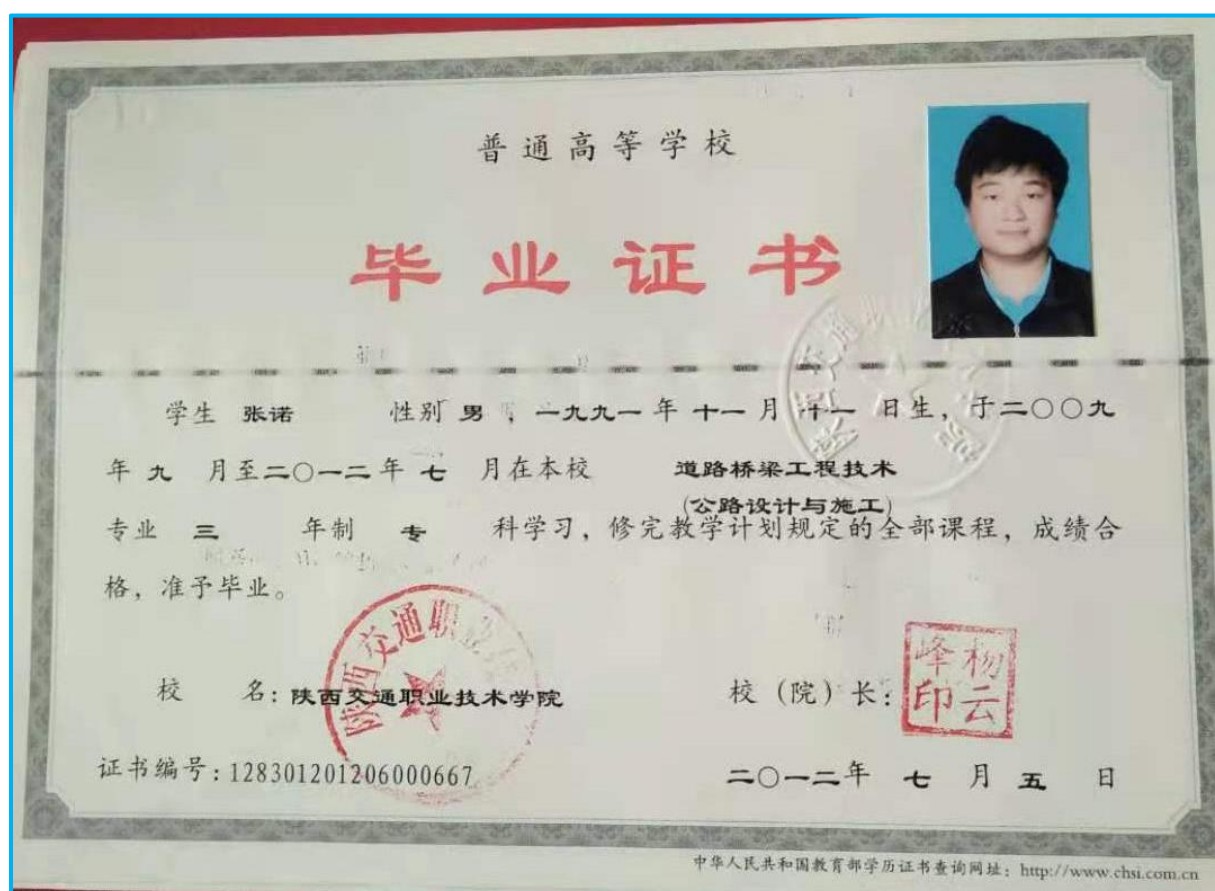 普通高等学校
毕业证书
学生 张诺 性别 男 ，一九九一 年 十一 月 廿一 日生，于二〇〇九
年 九 月至二〇一二年 七 月在本校 道路桥梁工程技术
(公路设计与施工)
专业 三 年制 专 科学习，修完教学计划规定的全部课程，成绩合
格，准予毕业。
陕西交通职业
峰杨
印云
校 名：陕西交通职业技术学院 校（院）长：
证书编号：128301201206000667 二〇一二年 七 月 五 日
中华人民共和国教育部学历证书查询网址：http://www.chsi.com.cn